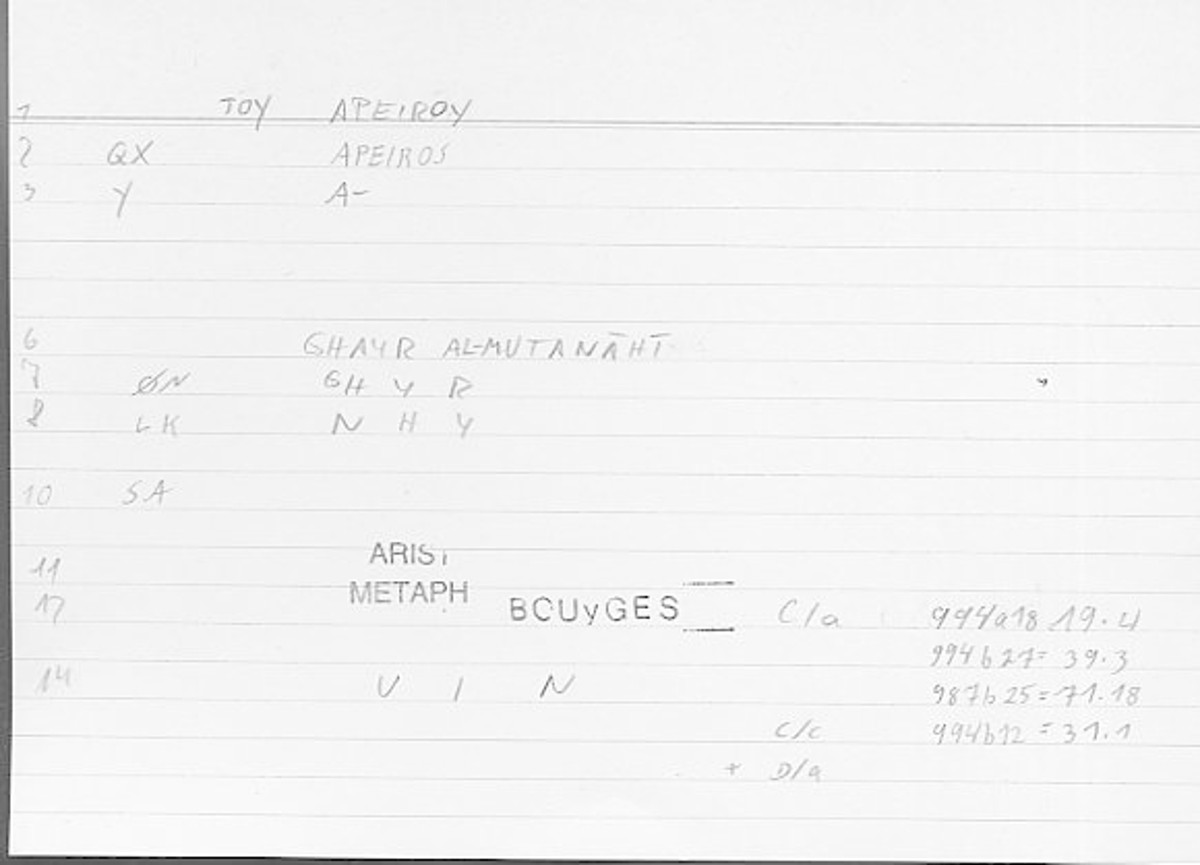 1 TOY APEIROY
2 QX APEIROS
3 Y A-
6 GHAYR AL-MUTANĀHĪ
7 ØN GH Y R
8 LK N H Y
10 SA
11 ARIST
METAPH
12 BOUyGES C/a 994a18 19.4
994b27= 39.3
14 V I N 987b25=71.18
C/c 994b12 = 31.1
+ D/a